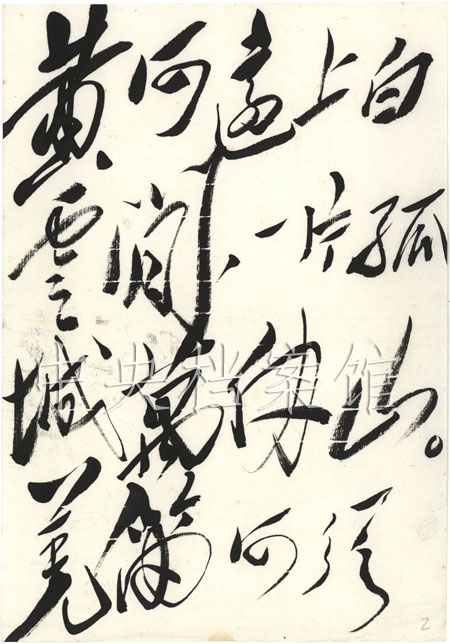 黄河遠上白
雲間、一片孤
城萬仞山。
羌笛何须
中央档案馆
2